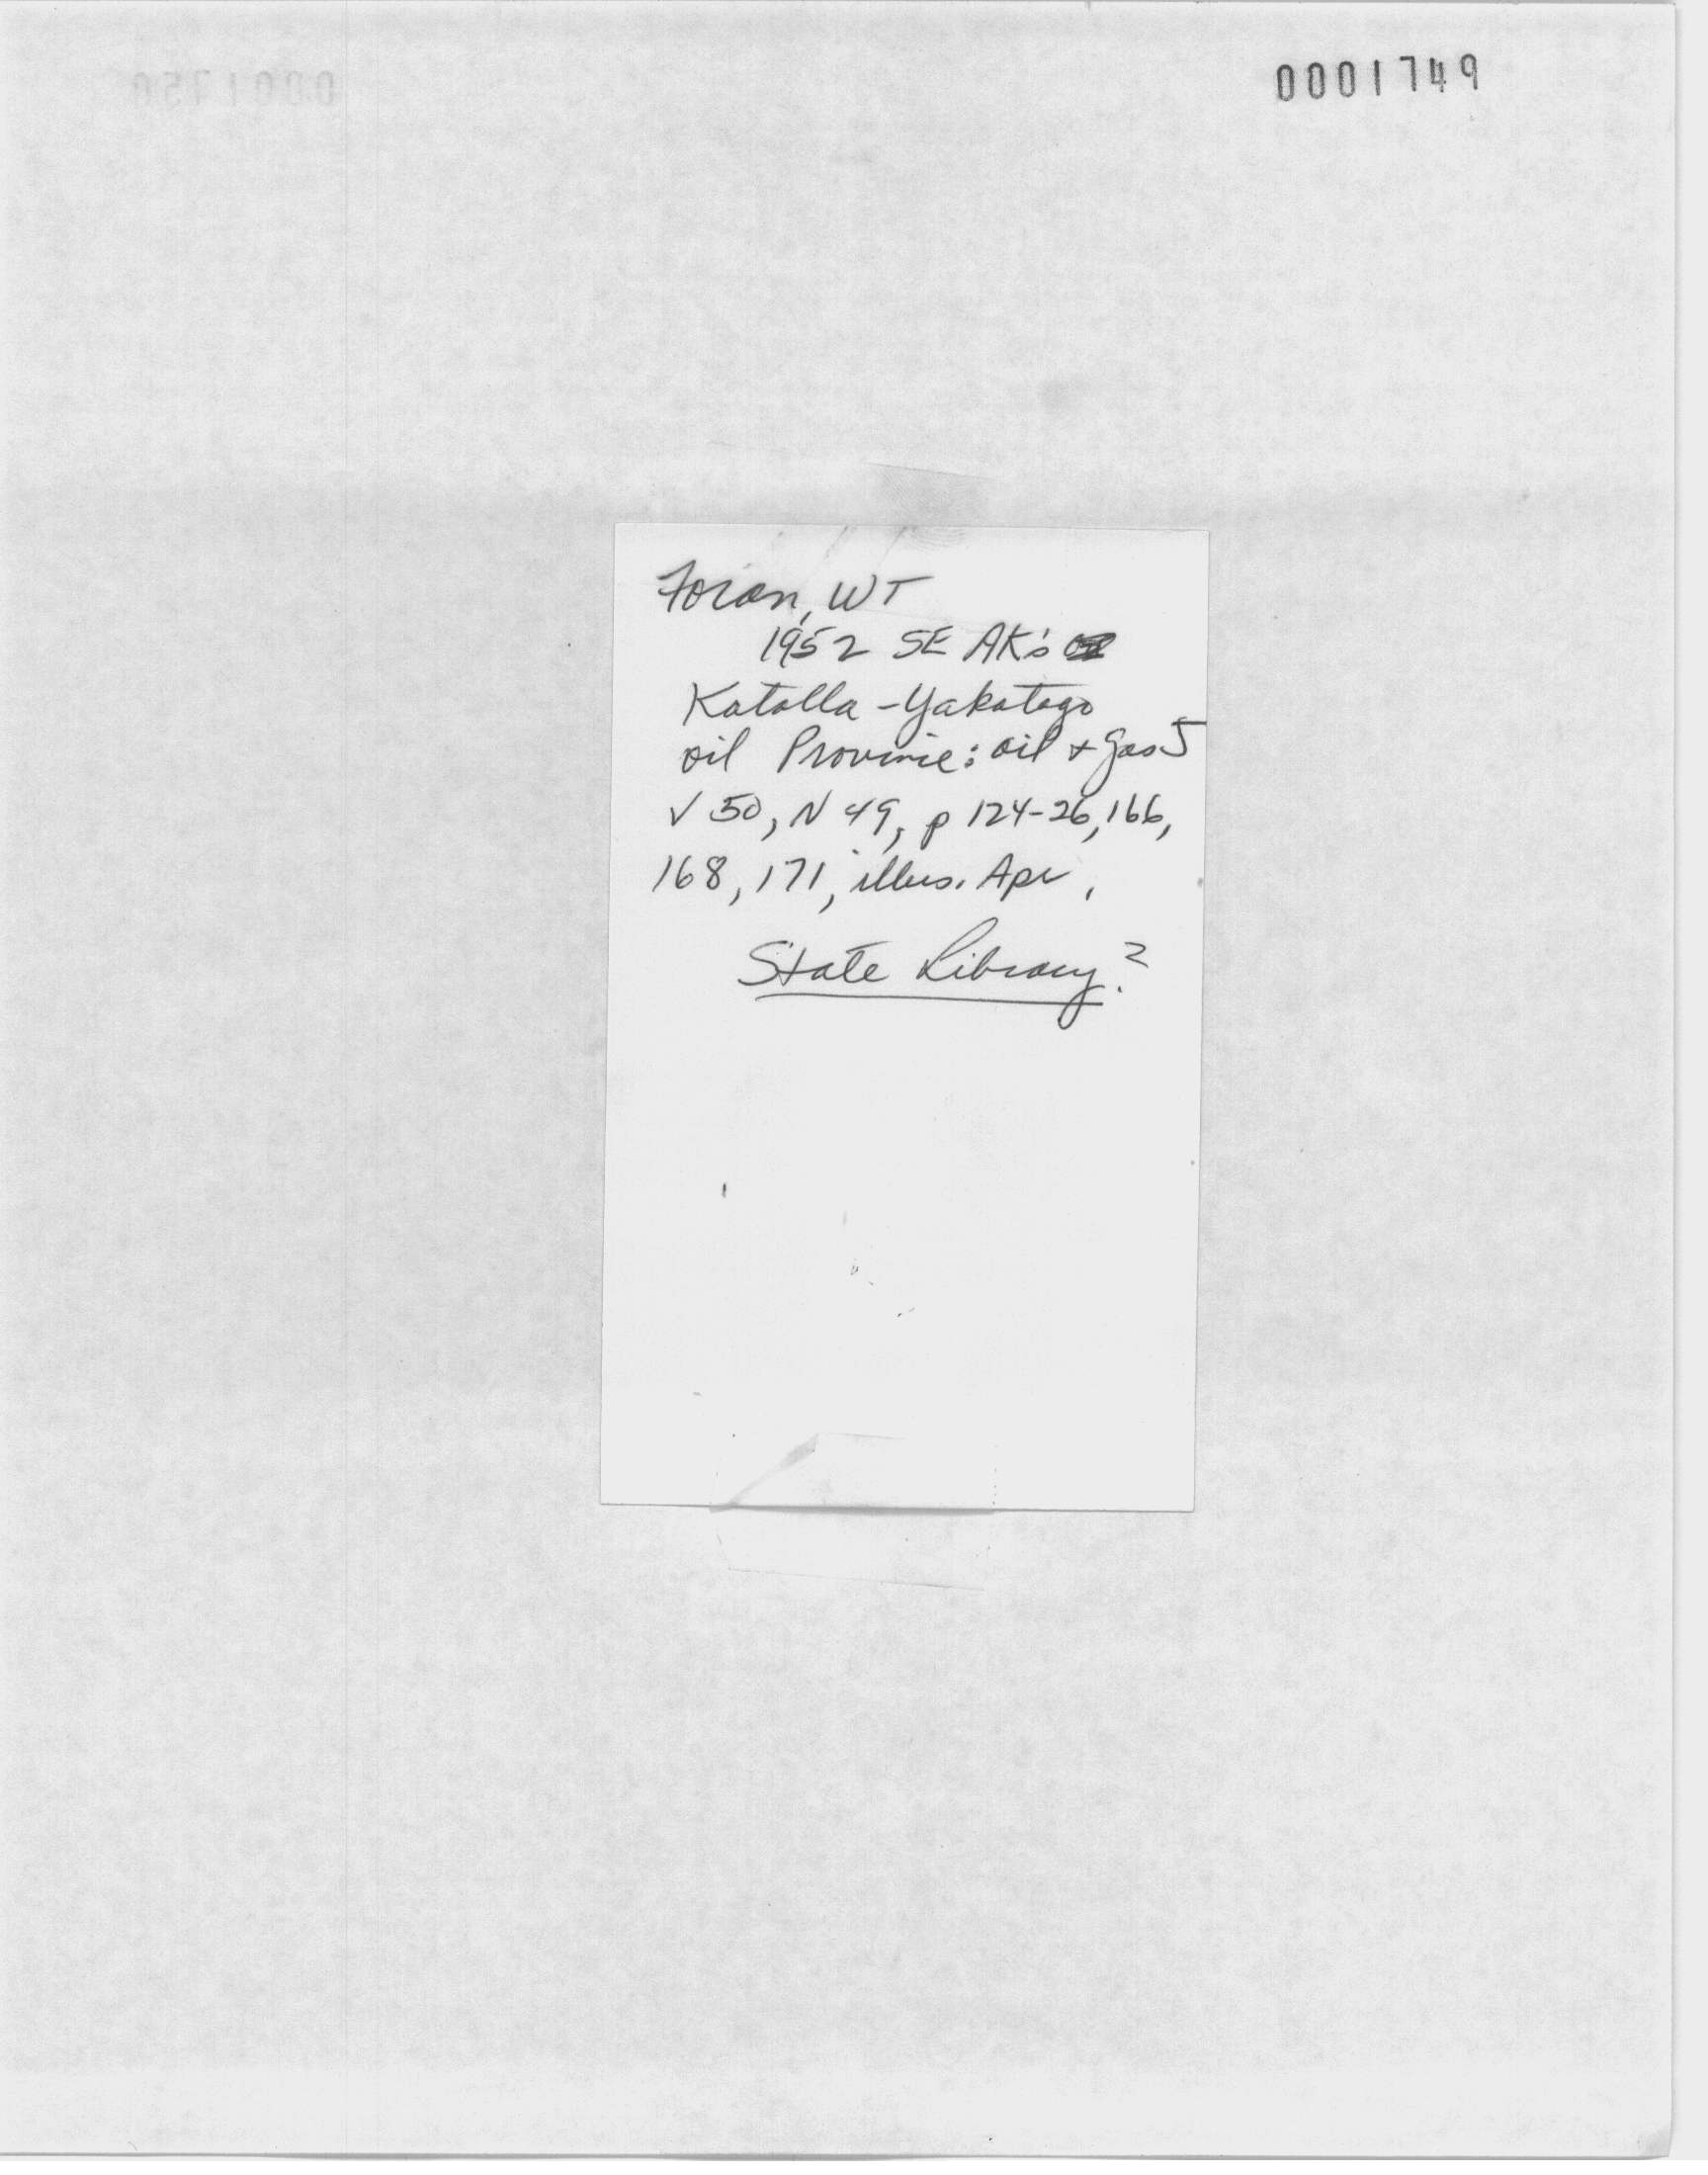 0001749
Foran, WT
1952 SE AK's
Katalla-Yakataga
oil Province: oil + Gas J
V 50, N 49, p 124-26, 166,
168, 171, illus. Apr.
State Library?